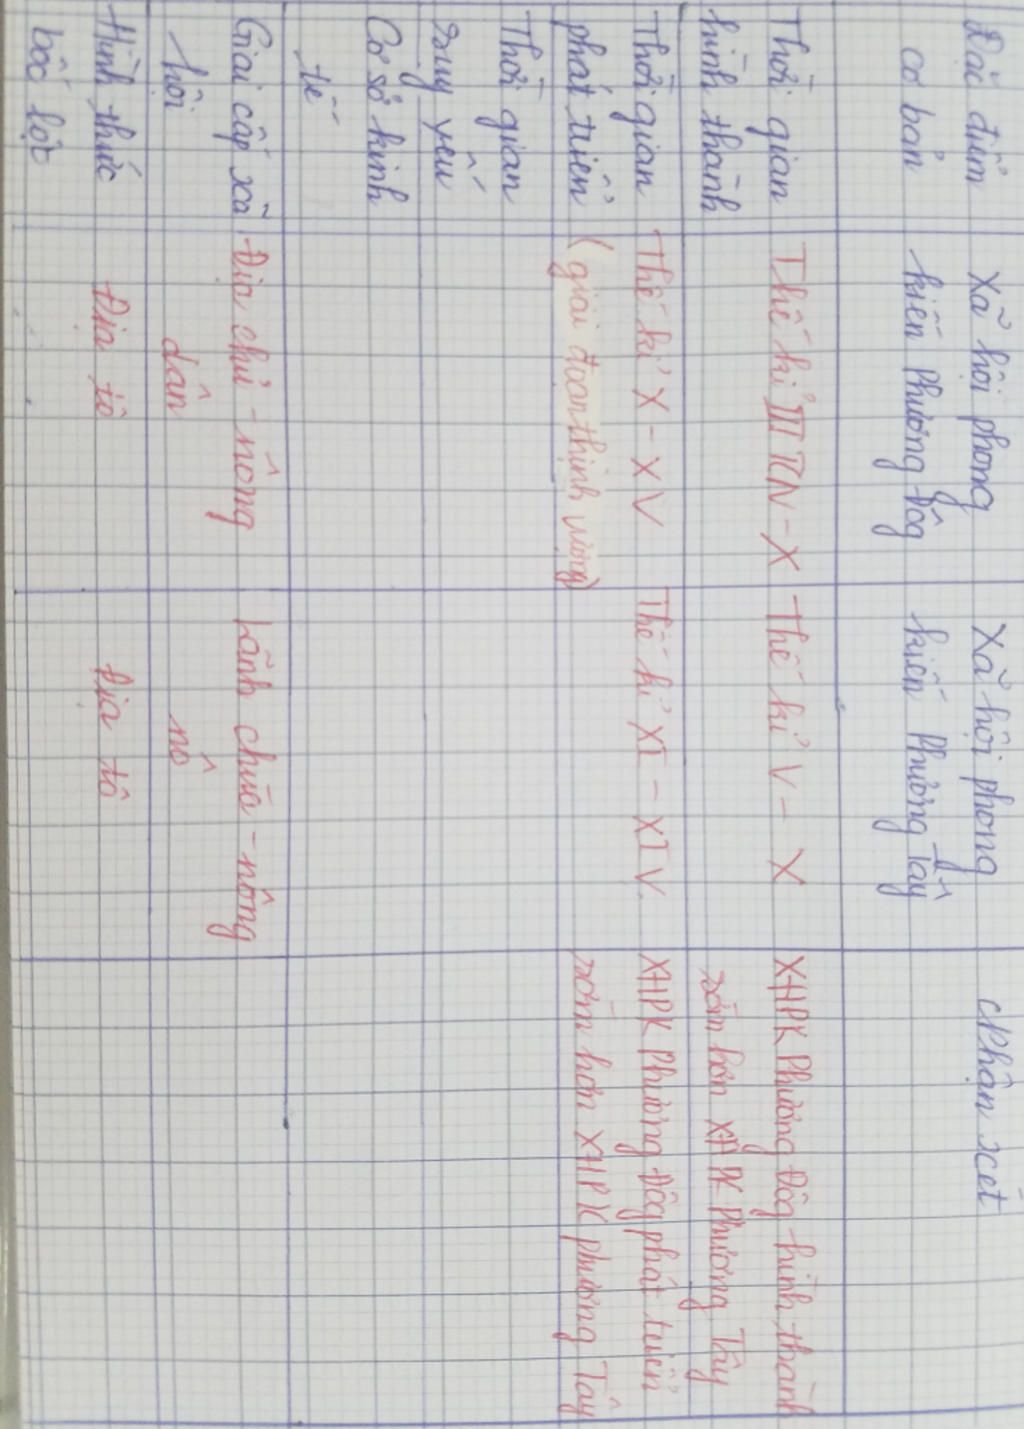 Đặc điểm
cơ bản
Xã hội phong
kiến Phương Đôg
Xã hội phong
kiến Phương Tây
Nhận xét
Thời gian
hình thành
Thế kỉ III TCN - X
Thế kỉ V - X
XHPK Phương Đôg hình thành
sớm hơn XHPK Phương Tây
Thời gian
phát triển
Thế kỉ X - XV
(giai đoạn thịnh vượng)
Thế kỉ XI - XIV.
XHPK Phương Đôg phát triển
sớm hơn XHPK phương Tây
Thời gian
suy yếu
Cơ sở kinh
tế
Giai cấp xã
hội
Địa chủ - nông
dân
Lãnh chúa - nông
nô
Hình thức
bóc lột
Địa tô
Địa tô